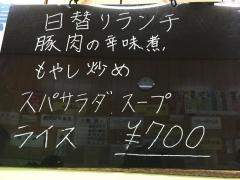 日替りランチ
豚肉の辛味煮、
もやし炒め
スパサラダ、スープ
ライス ¥700